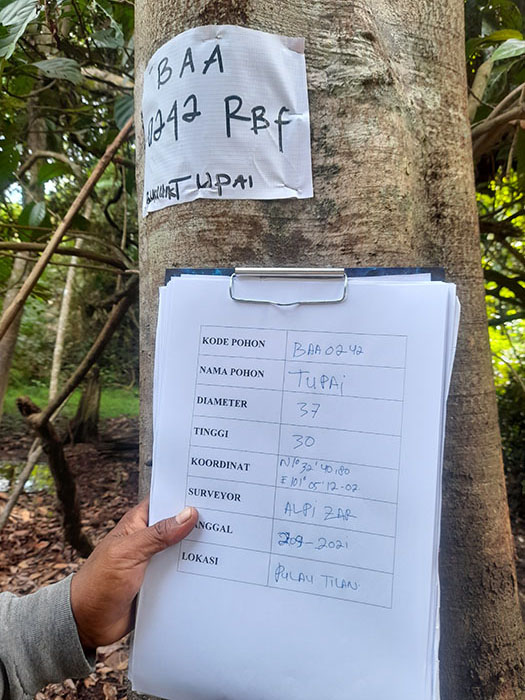 BAA
0242 RBF
TUPAI
KODE POHON BAA 0242
NAMA POHON TUPAI
DIAMETER 37
TINGGI 30
KOORDINAT N1° 32' 40,80
E 101° 05' 12-02
SURVEYOR ALPI ZAR
ANGGAL -2021
LOKASI PULAU TILAN